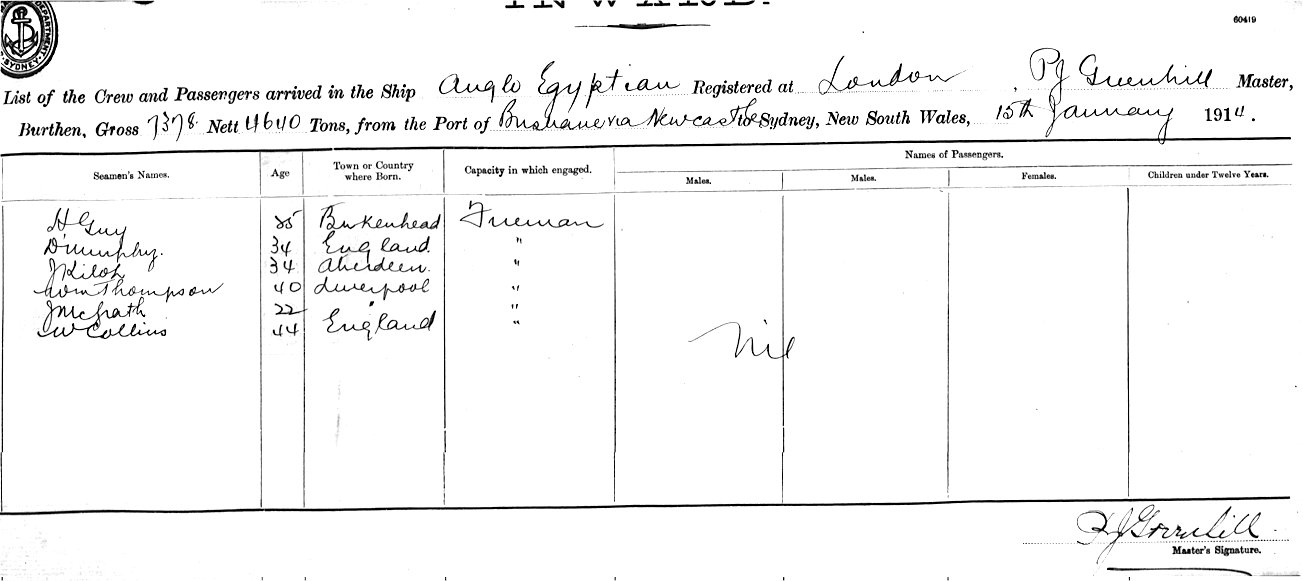 INWARD.
60419
DEPARTMENT. SYDNEY.
List of the Crew and Passengers arrived in the Ship Anglo Egyptian Registered at London, PJ Greenhill Master,
Burthen, Gross 7378 Nett 4640 Tons, from the Port of Brisbane via Newcastle to Sydney, New South Wales, 15th January 1914.
Seamen's Names. Age Town or Country where Born. Capacity in which engaged. Names of Passengers.
Males. Males. Females. Children under Twelve Years.
H Guy Birkenhead Fireman
D Murphy. 34 England "
J Kiloh 34 Aberdeen. "
Wm Thompson 40 Liverpool "
J McGrath 22 " "
W Collins 44 England "
Nil
PJ Greenhill
Master's Signature.